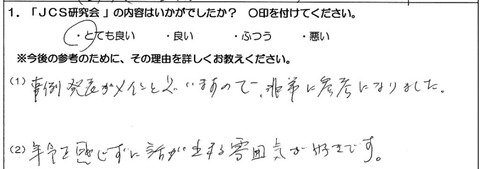 1. 「JCS研究会」の内容はいかがでしたか? ○印を付けてください。
・とても良い ・良い ・ふつう ・悪い
※今後の参考のために、その理由を詳しくお教えください。
(1) 事例発表がメインと思いますので、非常に参考になりました。
(2) 年令を感じずに話が出来る雰囲気が好きです。